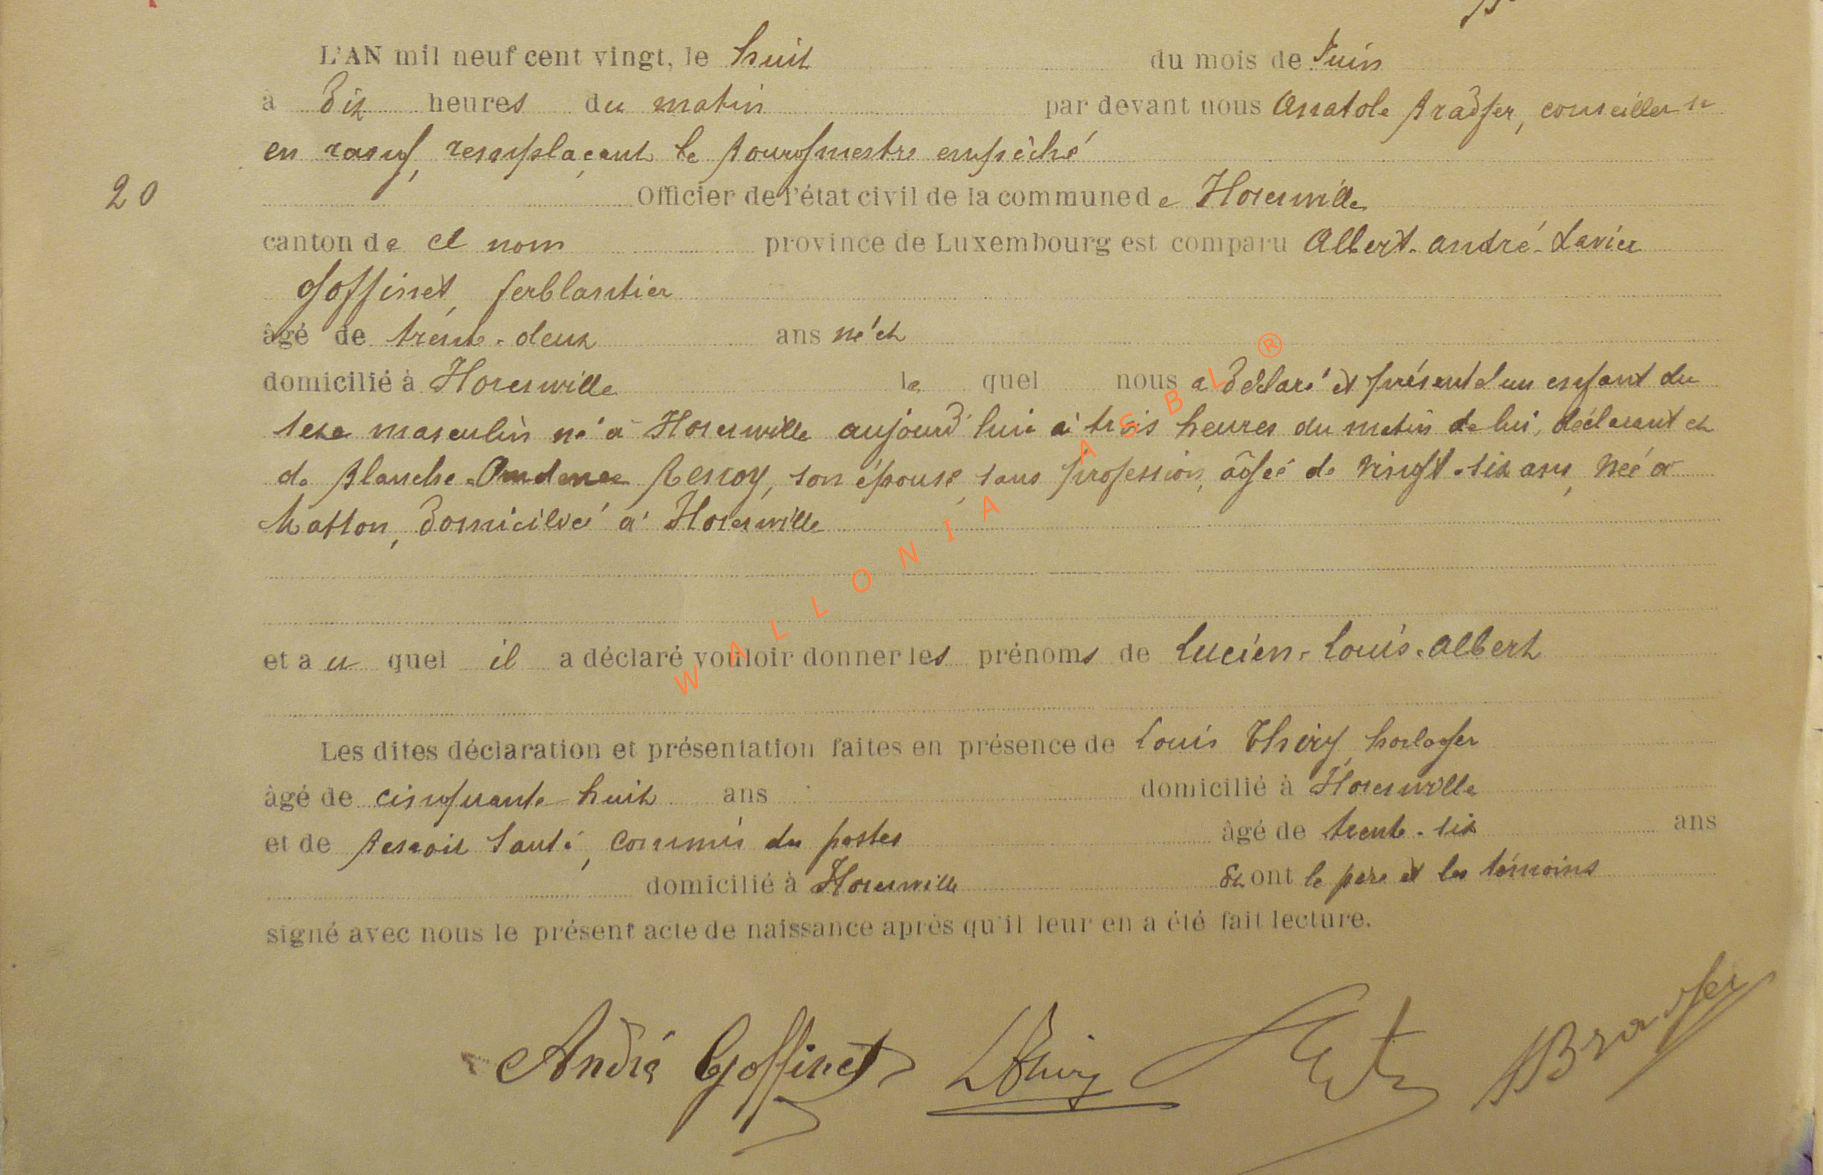 L'AN mil neuf cent vingt, le huit du mois de Juin
à dix heures du matin par devant nous Anatole Bradfer, conseiller
en rang, remplaçant le Bourgmestre empêché
20 Officier de l'état civil de la commune de Florenville
canton de ce nom province de Luxembourg est comparu Albert-André-Xavier
Goffinet, ferblantier
âgé de trente-deux ans né et
domicilié à Florenville lequel nous a déclaré et présenté un enfant du
sexe masculin né à Florenville aujourd'hui à trois heures du matin de lui, déclarant et
de Blanche Renoy, son épouse, sans profession, âgée de vingt-six ans, née à
Matton, domiciliée à Florenville
et auquel il a déclaré vouloir donner les prénoms de Lucien-Louis-Albert
Les dites déclaration et présentation faites en présence de Louis Thiry, horloger
âgé de cinquante huit ans domicilié à Florenville
et de commis des postes âgé de trente-six ans
domicilié à Florenville et ont le père et les témoins
signé avec nous le présent acte de naissance après qu'il leur en a été fait lecture.
André Goffinet LThiry ABradfer
WALLONIA ASBL ®